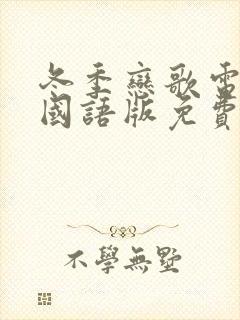 冬季戀歌電
國語版免費
不學無墅